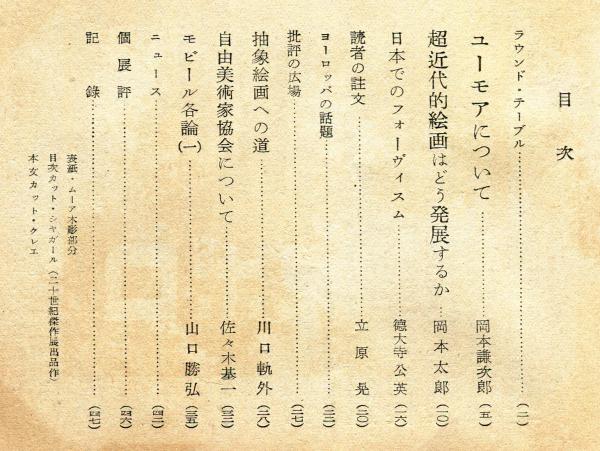 目次
ラウンド・テーブル……(二)
ユーモアについて……岡本謙次郎(五)
超近代的絵画はどう発展するか…岡本太郎(一〇)
日本でのフォーヴィスム……德大寺公英(一六)
読者の註文……立原晃(二〇)
ヨーロッパの話題……(二二)
批評の広場……(二七)
抽象絵画への道……川口軌外(二八)
自由美術家協会について……佐々木基一(三二)
モビール各論(一)……山口勝弘(三五)
ニュース……(四二)
個展評……(四六)
記録……(四七)
表紙・ムーア木彫部分
目次カット・シャガール(二十世紀傑作展出品作)
本文カット・クレエ